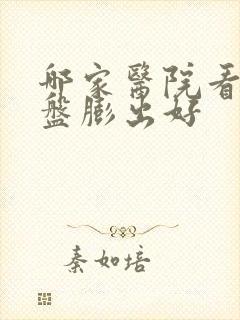 哪家醫院看
盤膨出好
秦如培